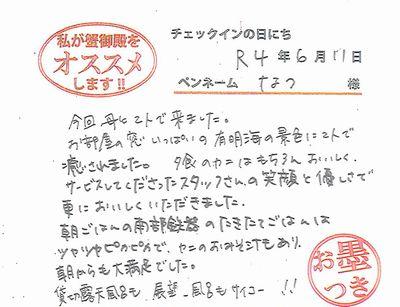 私が蟹御殿を
オススメ
します!!
チェックインの日にち
R4年6月11日
ペンネーム なつ 様
今回 母と2人で来ました。
お部屋の窓いっぱいの有明海の景色に2人で
癒されました。 夕食のカニはもちろんおいしく、
サービスしてくださったスタッフさんの笑顔と優しさで
更においしくいただきました。
朝ごはんの南部鉄器のたきたてごはんは
ツヤツヤピカピカで、カニのおみそ汁もあり、
朝からも大満足でした。
貸切露天風呂も、展望風呂もサイコー!!
お墨つき